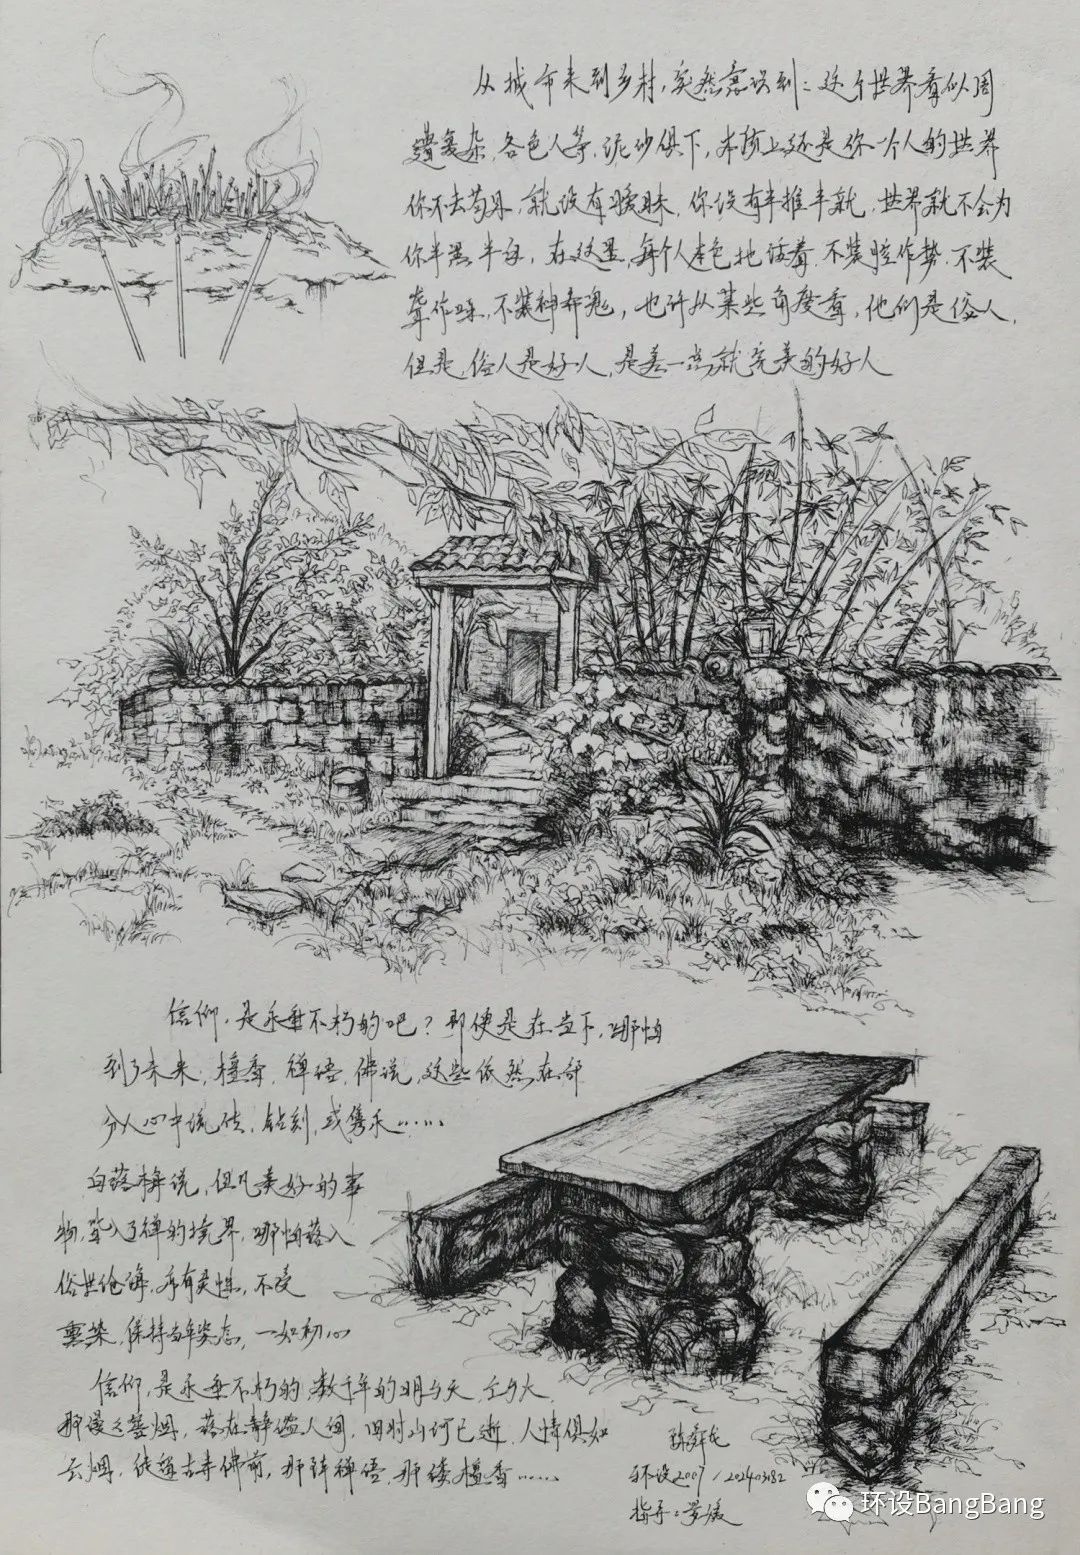 从城市来到乡村，突然意识到：这个世界看似周
遭复杂，各色人等，泥沙俱下，本质上还是你一个人的世界
你不去苟且，就没有暧昧，你没有半推半就，世界就不会为
你半黑半白，在这里，每个人本色地活着，不装腔作势，不装
聋作哑，不装神弄鬼，也许从某些角度看，他们是俗人，
但是，俗人是好人，是差一点就完美的好人
信仰，是永垂不朽的吧？即使是在当下，哪怕
到了未来，檀香，禅语，佛说，这些依然在部
分人心中流传，钻刻，或隽永……
白落梅说，但凡美好的事
物，染入了禅的境界，哪怕落入
俗世沧海，亦有灵性，不受
熏染，保持当年姿态，一如初心
信仰，是永垂不朽的，数千年的明与灭
那漫过 烟，落在静谧人间，旧时山河已逝，人情俱如
云烟，徒留古寺佛前，那阵禅语，那缕檀香……
环设2007 / 202403182
指导：
环设BangBang